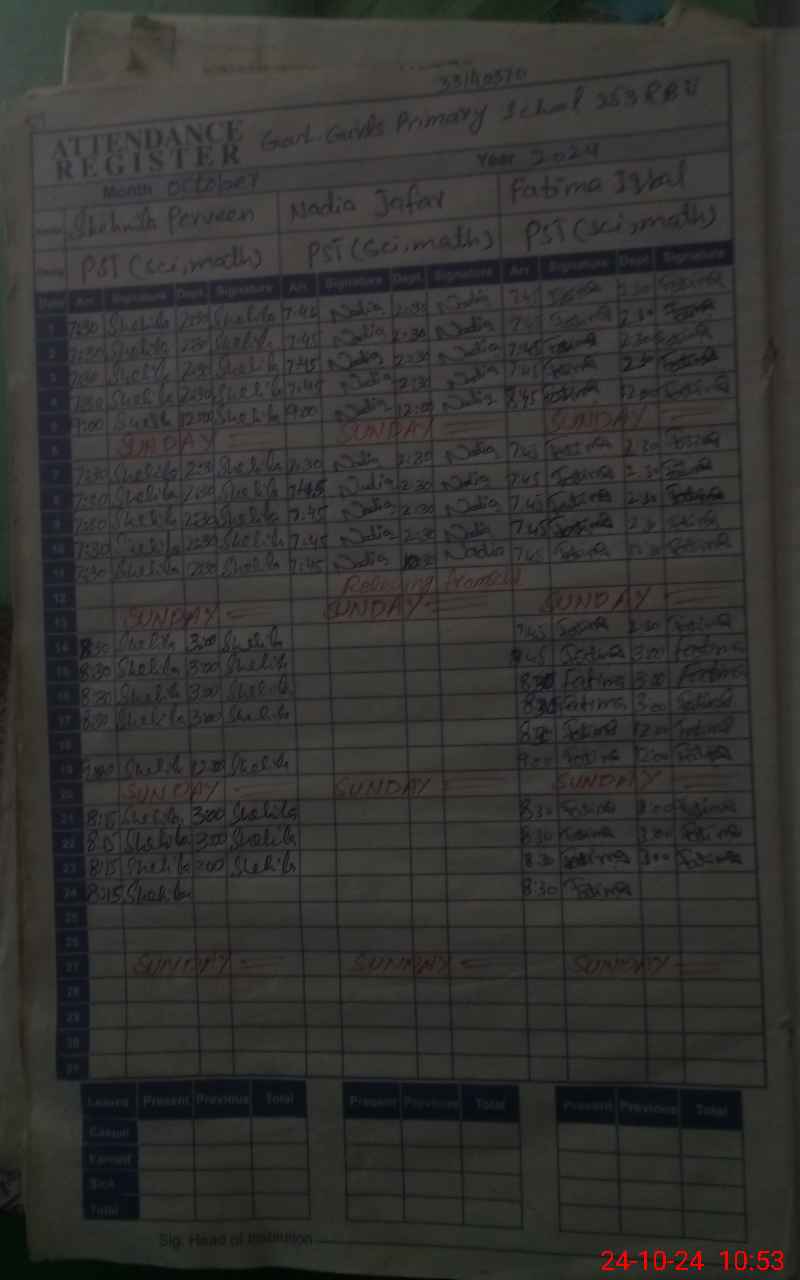 33140370
ATTENDANCE REGISTER Govt. Girls Primary School 363 RBU
Month October Year 2024
Perveen Nadia Jafar Fatima Iqbal
PST (sci, math) PST (sci, math) PST (sci, math)
Date Arr. Signature Dept. Signature Arr. Signature Dept. Signature Arr. Signature Dept. Signature
1 7:30 Shehila 2:30 Shehila 7:45 Nadia 2:30 Nadia 7:45 Fatima 2:30 Fatima
2 7:30 Shehila 2:30 Shehila 7:45 Nadia 2:30 Nadia 7:45 Fatima 2:30 Fatima
3 7:30 Shehila 2:30 Shehila 7:45 Nadia 2:30 Nadia 7:45 Fatima 2:30 Fatima
4 7:30 Shehila 2:30 Shehila 7:45 Nadia 2:30 Nadia 7:45 Fatima 2:30 Fatima
5 9:00 Shehila 12:00 Shehila 9:00 Nadia 12:00 Nadia 8:45 Fatima 12:00 Fatima
6 SUNDAY SUNDAY SUNDAY
7 7:30 Shehila 2:30 Shehila 7:30 Nadia 2:30 Nadia 7:45 Fatima 2:30 Fatima
8 7:30 Shehila 2:30 Shehila 7:45 Nadia 2:30 Nadia 7:45 Fatima 2:30 Fatima
9 7:30 Shehila 2:30 Shehila 7:45 Nadia 2:30 Nadia 7:45 Fatima 2:30 Fatima
10 7:30 Shehila 2:30 Shehila 7:45 Nadia 2:30 Nadia 7:45 Fatima 2:30 Fatima
11 7:30 Shehila 12:30 Shehila 7:45 Nadia Nadia 7:45 Fatima Fatima
12 Relieving from
13 SUNDAY SUNDAY SUNDAY
14 8:30 Shehila 3:00 Shehila 7:45 Fatima 2:30 Fatima
15 8:30 Shehila 3:00 Shehila Fatima 3:00 Fatima
16 8:30 Shehila 3:00 Shehila 8:30 Fatima 3:00 Fatima
17 8:30 Shehila 3:00 Shehila 8:30 Fatima 3:00 Fatima
18 8:30 Fatima 12:00 Fatima
19 9:00 Shehila 12:00 Shehila 9:00 Fatima 12:00 Fatima
20 SUNDAY SUNDAY SUNDAY
21 8:15 Shehila 3:00 Shehila 8:30 Fatima 3:00 Fatima
22 8:15 Shehila 3:00 Shehila 8:30 Fatima 3:00 Fatima
23 8:15 Shehila 3:00 Shehila 8:30 Fatima 3:00 Fatima
24 8:15 Shehila 8:30 Fatima
25
26
27 SUNDAY SUNDAY SUNDAY
28
29
30
31
Leaves Present Previous Total Present Previous Total Present Previous Total
Casual
Earned
Sick
Total
Sig. Head of Institution
24-10-24 10:53